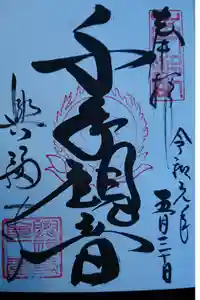 奉拝
令和元年
五月三十日
千手観音
興福寺